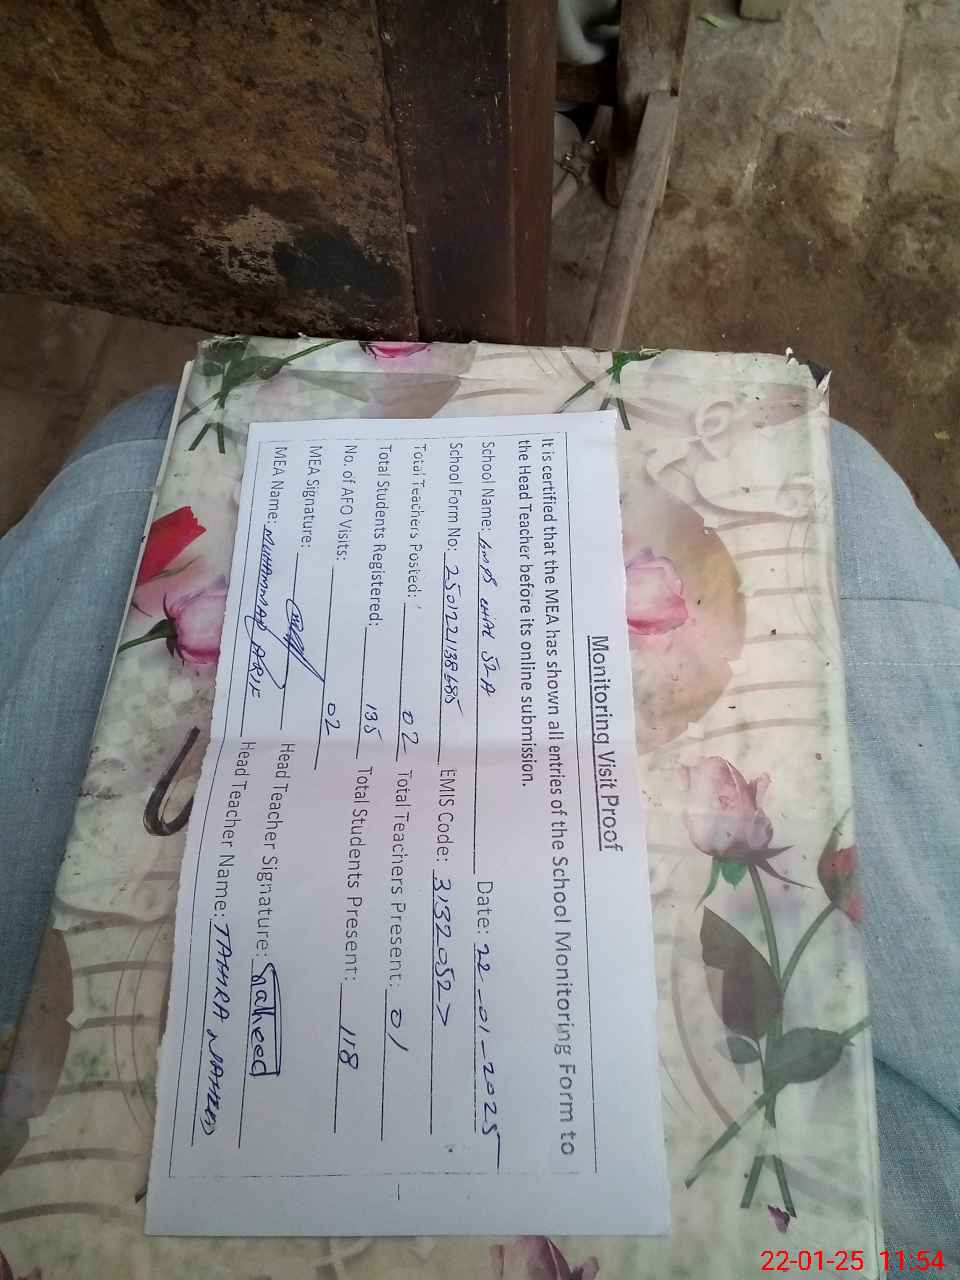 Monitoring Visit Proof
It is certified that the MEA has shown all entries of the School Monitoring Form to
the Head Teacher before its online submission.
School Name: GMPS CHAK 52-A Date: 22-01-2025
School Form No: EMIS Code: 31320527
Total Teachers Posted: 02 Total Teachers Present: 01
Total Students Registered: 135 Total Students Present: 118
No. of AFO Visits: 02
MEA Signature: Head Teacher Signature:
MEA Name: MUHAMMAD ARIF Head Teacher Name: TAHIRA
22-01-25 11:54